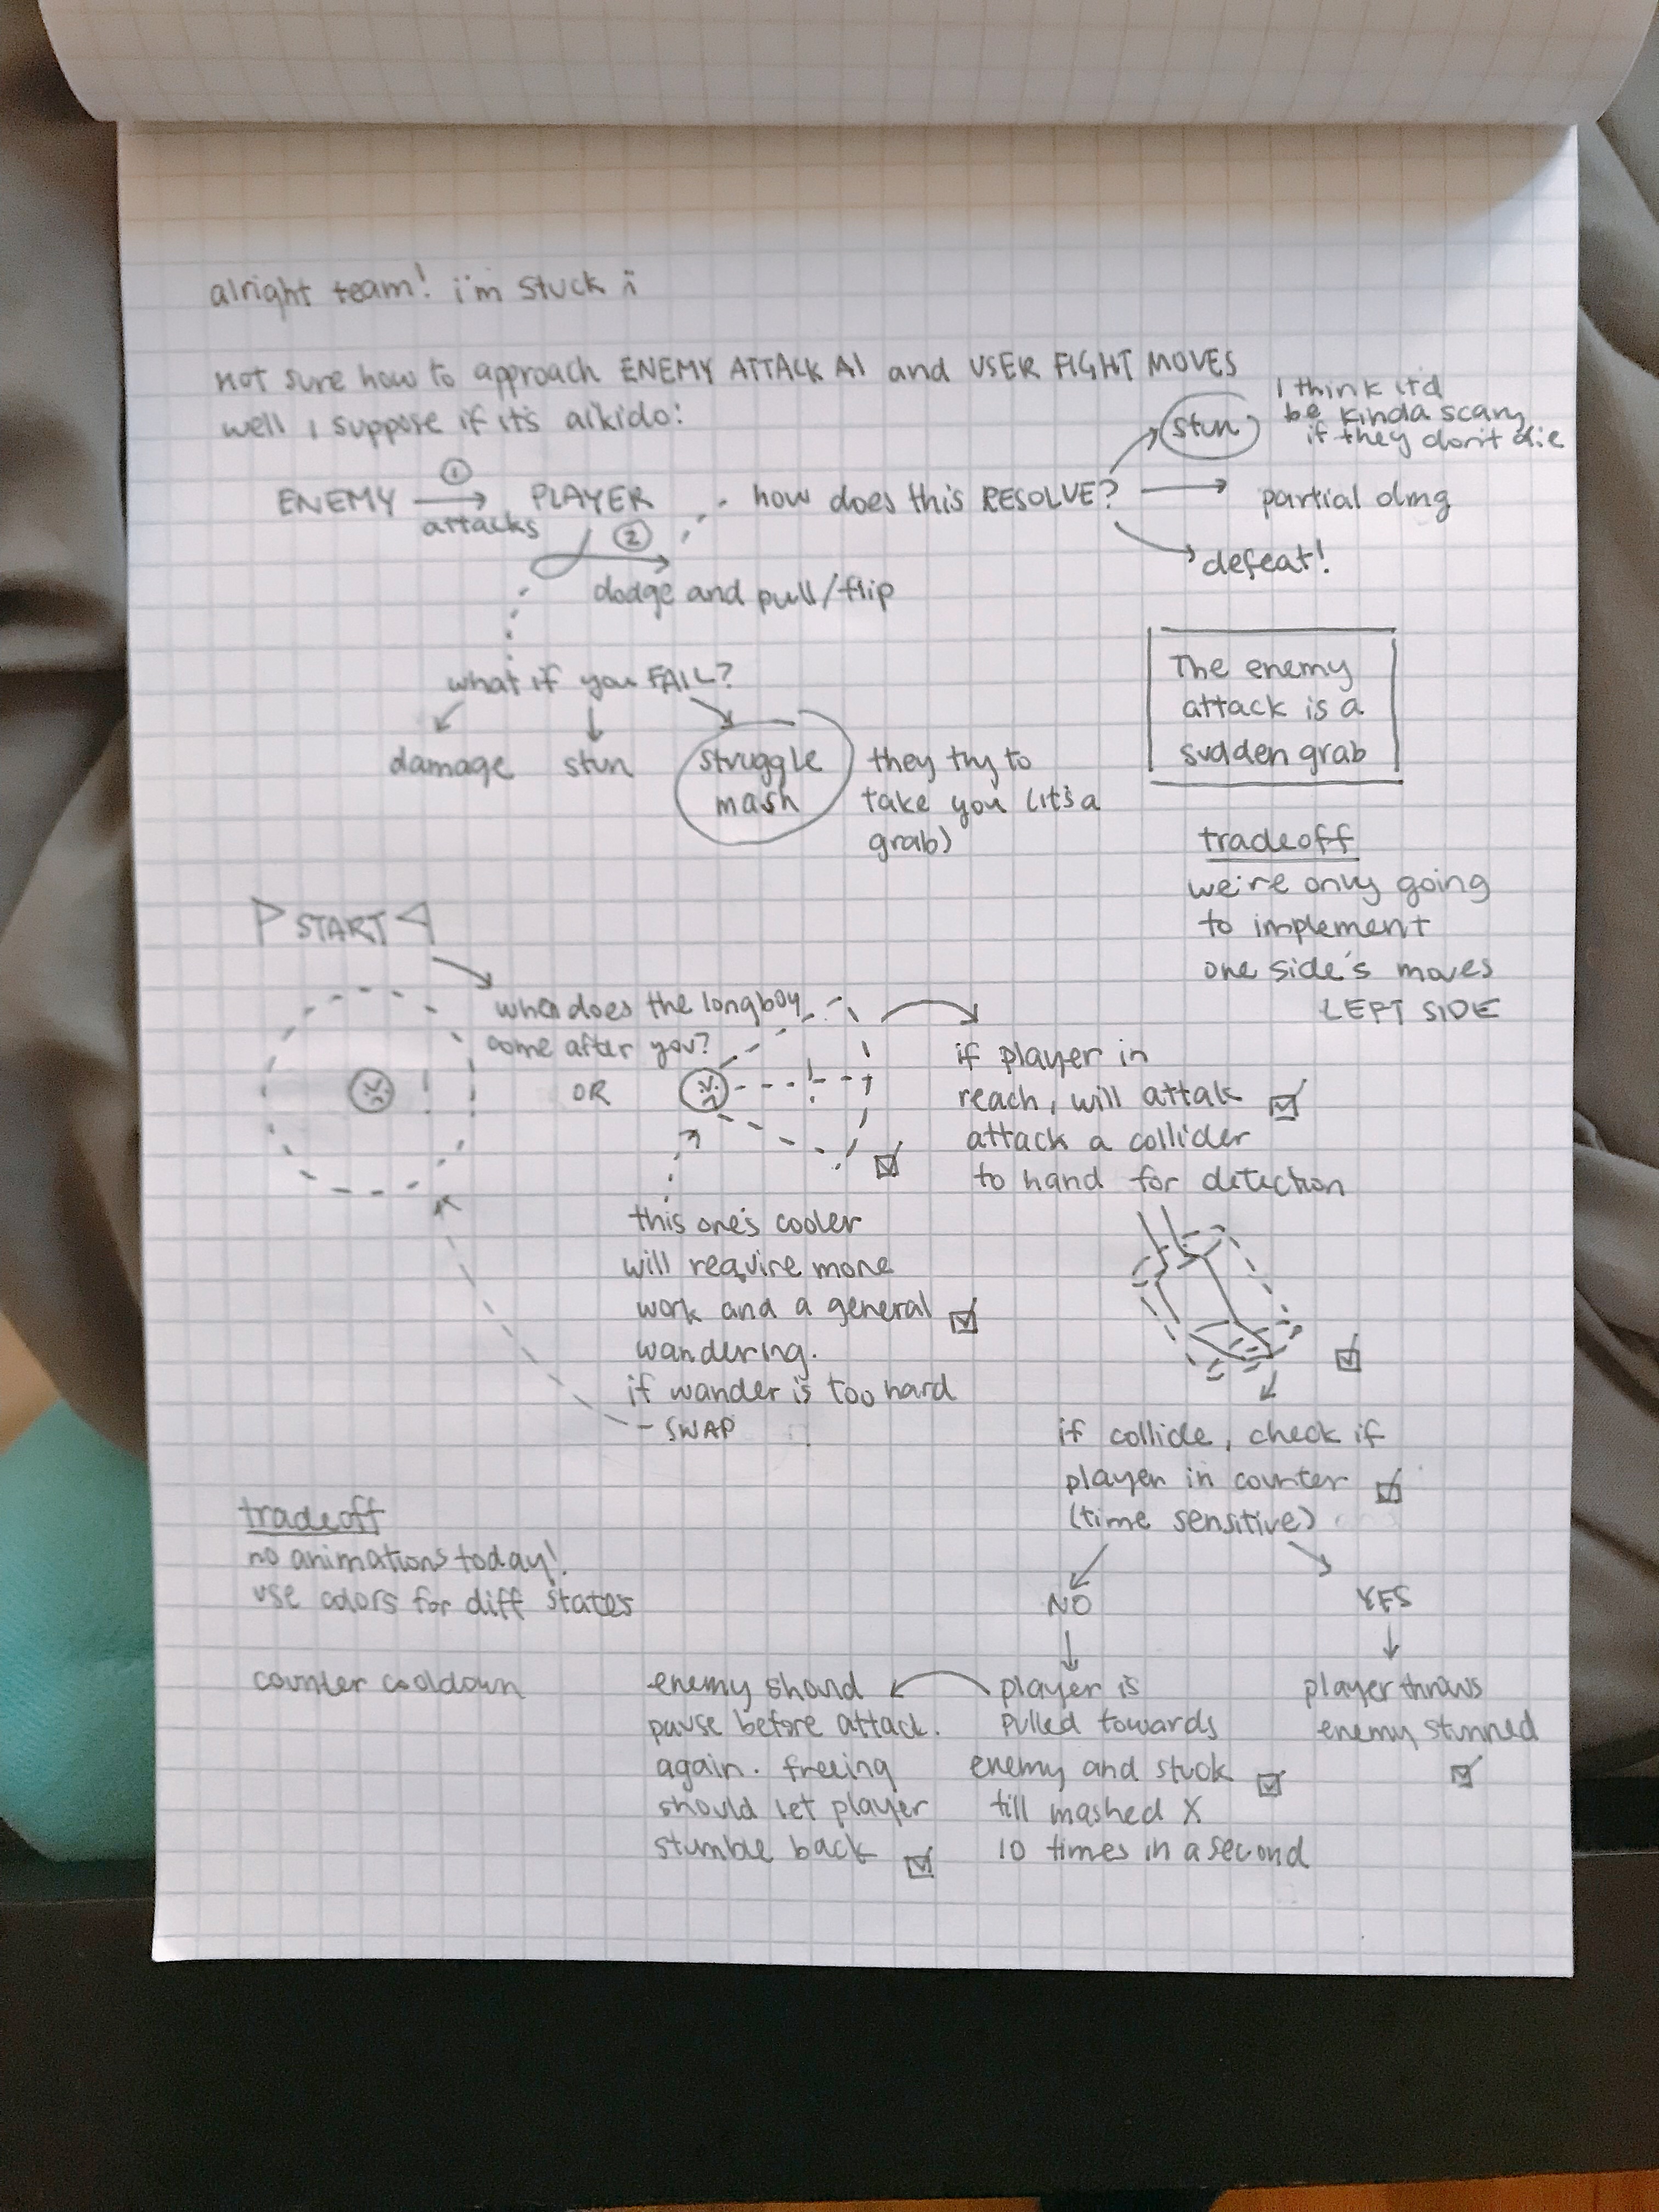 alright team! i'm stuck :
not sure how to approach ENEMY ATTACK AI and USER FIGHT MOVES
well i suppose if it's aikido:
ENEMY
①
attacks
PLAYER
②
dodge and pull/flip
how does this RESOLVE?
stun
I think it'd
be kinda scary
if they don't die
partial dmg
defeat!
what if you FAIL?
damage
stun
struggle
mash
they try to
take you (it's a
grab)
The enemy
attack is a
sudden grab
tradeoff
we're only going
to implement
one side's moves
LEFT SIDE
START
when does the longboy
come after you?
!
OR
!
if player in
reach, will attak
attack a collider
to hand for detection
this one's cooler
will require more
work and a general
wandering.
if wander is too hard
- SWAP
if collide, check if
player in counter
(time sensitive)
NO
YES
player throws
enemy stunned
player is
pulled towards
enemy and stuck
till mashed X
10 times in a second
enemy should
pause before attack.
again. freeing
should let player
stumble back
tradeoff
no animations today!
use colors for diff states
counter cooldown